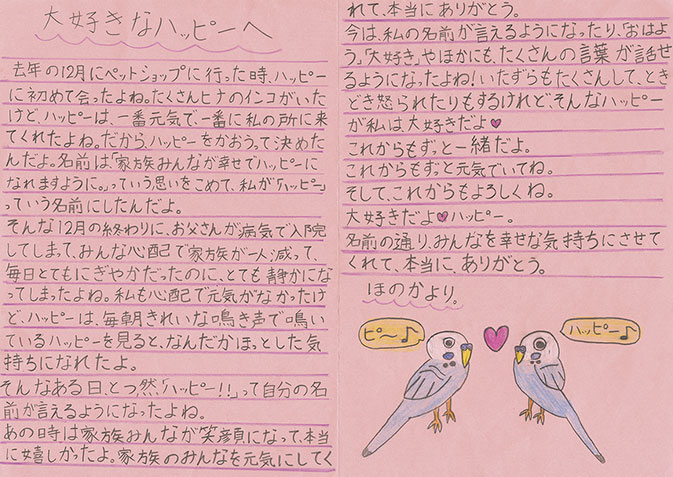 大好きなハッピーへ
去年の12月にペットショップに行った時、ハッピー
に初めて会ったよね。たくさんヒナのインコがいた
けど、ハッピーは、一番元気で一番に私の所に来
てくれたよね。だから、ハッピーをかおうって決めた
んだよ。名前は「家族みんなが幸せでハッピーに
なれますように。」っていう思いをこめて、私が「ハッピー」
っていう名前にしたんだよ。
そんな12月の終わりに、お父さんが病気で入院
してしまって、みんな心配で家族が一人減って、
毎日とてもにぎやかだったのに、とても静かにな
ってしまったよね。私も心配で元気がなかったけ
ど、ハッピーは、毎朝きれいな鳴き声で鳴い
ているハッピーを見ると、なんだかほっとした気
持ちになれたよ。
そんなある日、とつ然「ハッピー!!」って自分の名
前が言えるようになったよね。
あの時は家族みんなが笑顔になって、本当
に嬉しかったよ。家族のみんなを元気にしてく
れて、本当にありがとう。
今は、私の名前が言えるようになったり、「おはよ
う」「大好き」やほかにも、たくさんの言葉が話せ
るようになったよね!いたずらもたくさんして、とき
どき怒られたりもするけれど、そんなハッピー
が私は大好きだよ♥
これからもずっと一緒だよ。
これからもずっと元気でいてね。
そして、これからもよろしくね。
大好きだよ♥ハッピー。
名前の通り、みんなを幸せな気持ちにさせて
くれて、本当に、ありがとう。
ほのかより。
ピ〜♪
ハッピー♪